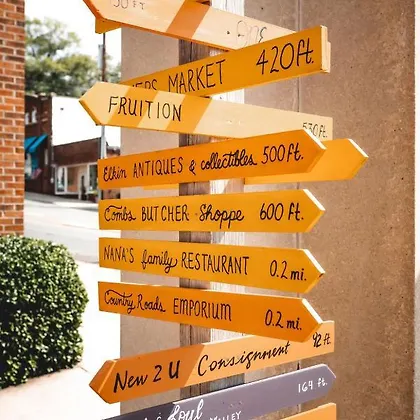 MARKET 420 ft.
FRUITION 530 ft.
Elkin ANTIQUES & collectibles 500 ft.
Combs BUTCHER Shoppe 600 ft.
NANA'S family RESTAURANT 0.2 mi.
Country Roads EMPORIUM 0.2 mi.
New 2 U Consignment 42 ft.
Soul 164 ft.